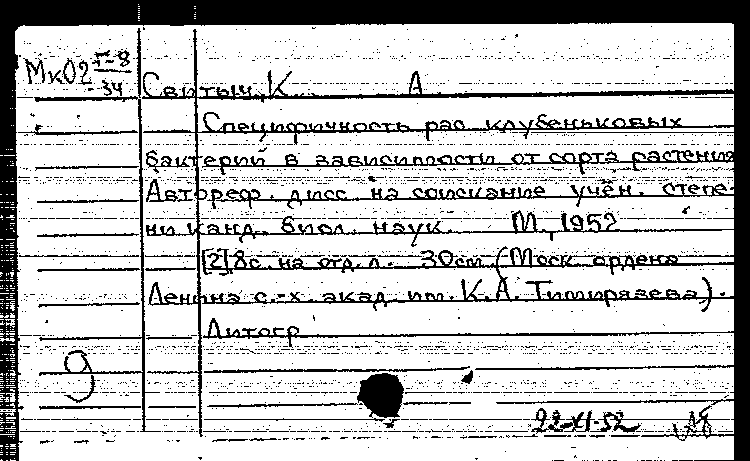 МкО2 Г-8
34
Свитыч, К. А
Специфичность рас клубеньковых
бактерий в зависимости от сорта растения
Автореф. дисс. на соискание учён. степе-
ни канд. биол. наук. М., 1952
[2] 8с. на отд. л. 30см (Моск. ордена
Ленина с.-х. акад. им. К.А. Тимирязева).
Литогр
9
22-XI-52